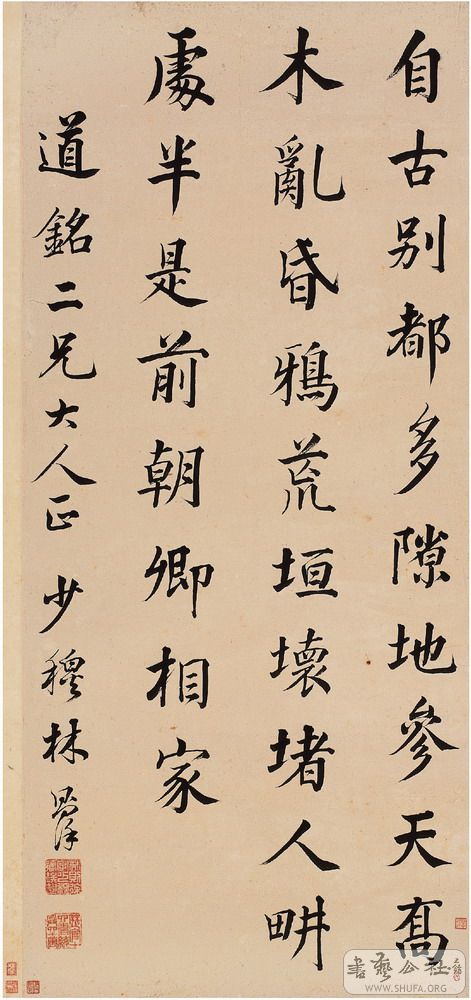 自古别都多隙地參天喬
木亂昏鴉荒垣壞堵人畊
處半是前朝卿相家
道銘二兄大人正 少穆林則徐
書藝公社
WWW.SHUFA.ORG